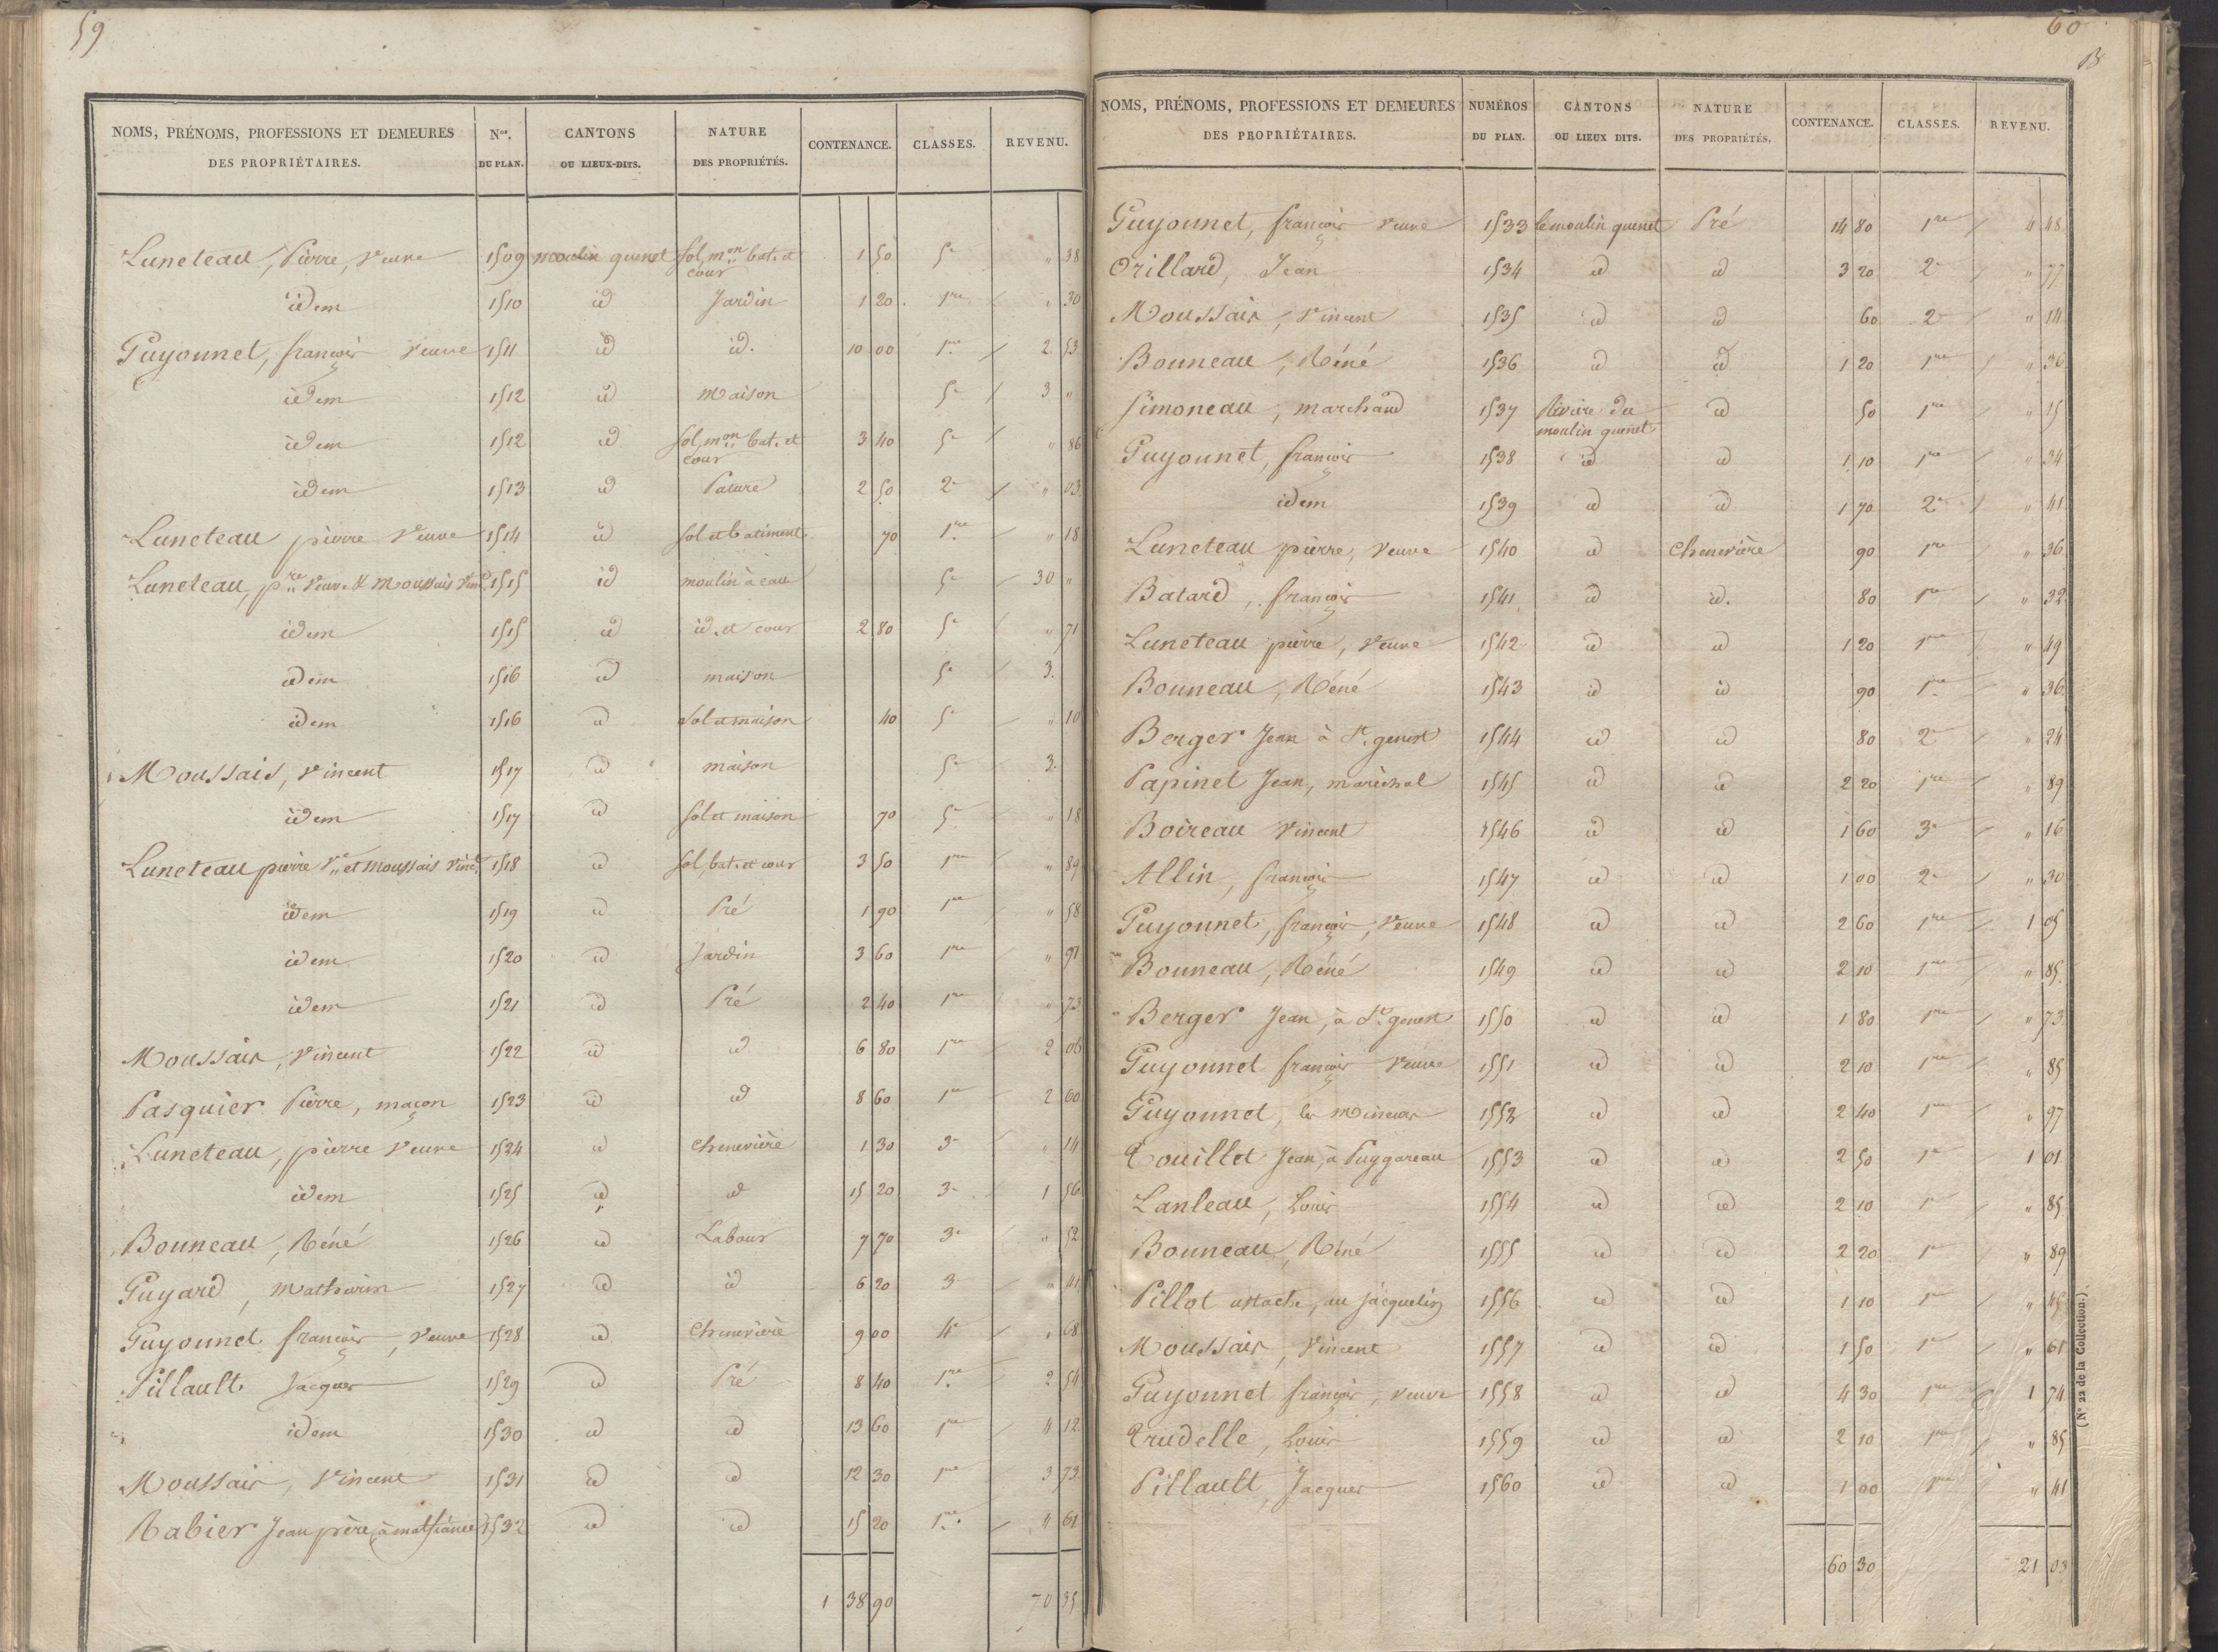 59
NOMS, PRÉNOMS, PROFESSIONS ET DEMEURES DES PROPRIÉTAIRES. Nos. DU PLAN. CANTONS OU LIEUX-DITS. NATURE DES PROPRIÉTÉS. CONTENANCE. CLASSES. REVENU.
Luneteau, Pierre, Veuve 1509 moulin quenet sol, mon bat. et cour 1 50 5e " 38
idem 1510 id Jardin 1 20 1re " 30
Guyonnet, françois Veuve 1511 id id. 10 00 1re 2 53
idem 1512 id maison 5e 3 "
idem 1512 id sol, mon bat. et cour 3 40 5e " 86
idem 1513 id Pature 2 50 2e " 03
Luneteau pierre Veuve 1514 id sol et batiment 70 1re " 18
Luneteau, pre Veuve & Moussais Vinct 1515 id moulin à eau 5e 30 "
idem 1515 id id. et cour 2 80 5e " 71
idem 1516 id maison 5e 3.
idem 1516 id sol et maison 40 5e " 10
Moussais, Vincent 1517 id maison 5e 3.
idem 1517 id sol et maison 70 5e " 18
Luneteau pierre Ve et Moussais Vinct 1518 id sol, bat. et cour 3 50 1re " 89
idem 1519 id Pré 1 90 1re " 58
idem 1520 id Jardin 3 60 1re " 91
idem 1521 id Pré 2 40 1re " 73
Moussais, Vincent 1522 id id 6 80 1re 2 06
Pasquier Pierre, maçon 1523 id id 8 60 1re 2 60
Luneteau, pierre Veuve 1524 id chenevière 1 30 3e " 14
idem 1525 id id 15 20 3e 1 56
Bonneau, Réné 1526 id Labour 7 70 3e " 52
Guyard, Mathurin 1527 id id 6 20 3e " 41
Guyonnet françois, Veuve 1528 id Chenevière 9 00 4e " 68
Pillault Jacques 1529 id Pré 8 40 1re 2 54
idem 1530 id id 13 60 1re 4 12
Moussais, Vincent 1531 id id 12 30 1re 3 73
Rabier Jean père, à 1532 id id 15 20 1re 4 61
1 38 90 70 35
60
NOMS, PRÉNOMS, PROFESSIONS ET DEMEURES DES PROPRIÉTAIRES. NUMÉROS DU PLAN. CANTONS OU LIEUX DITS. NATURE DES PROPRIÉTÉS. CONTENANCE. CLASSES. REVENU.
Guyonnet, françois Veuve 1533 le moulin quenet Pré 14 80 1re 4 48
Orillard, Jean 1534 id id 3 20 2e " 77
Moussais, Vincent 1535 id id 60 2e " 14
Bonneau, Réné 1536 id id 1 20 1re " 36
Simoneau, marchand 1537 Rivière du moulin quenet id 50 1re " 15
Guyonnet, françois 1538 id id 1 10 1re " 34
idem 1539 id id 1 70 2e " 41
Luneteau pierre, Veuve 1540 id Chenevière 90 1re " 36
Batard, françois 1541 id id. 80 1re " 32
Luneteau pierre, Veuve 1542 id id 1 20 1re " 49
Bonneau, Réné 1543 id id 90 1re " 36
Berger Jean à St. genest 1544 id id 80 2e " 24
Papinet Jean, maréchal 1545 id id 2 20 1re " 89
Boireau Vincent 1546 id id 1 60 3e " 16
Allin, françois 1547 id id 1 00 2e " 30
Guyonnet, françois, Veuve 1548 id id 2 60 1re 1 05
Bonneau, Réné 1549 id id 2 10 1re " 85
Berger Jean, à St. genest 1550 id id 1 80 1re " 73
Guyonnet françois Veuve 1551 id id 2 10 1re " 85
Guyonnet, les mineurs 1552 id id 2 40 1re " 97
Touillet Jean, à Puygareau 1553 id id 2 50 1re 1 01
Lanleau, Louis 1554 id id 2 10 1re " 85
Bonneau, Réné 1555 id id 2 20 1re " 89
Pillot ustache, au jacquelin 1556 id id 1 10 1re " 45
Moussais, Vincent 1557 id id 1 50 1re " 61
Guyonnet françois, veuve 1558 id id 4 30 1re 1 74
Trudelle, Louis 1559 id id 2 10 1re " 85
Pillault, Jacques 1560 id id 1 00 1re " 41
60 30 21 03
(N° 22 de la Collection.)